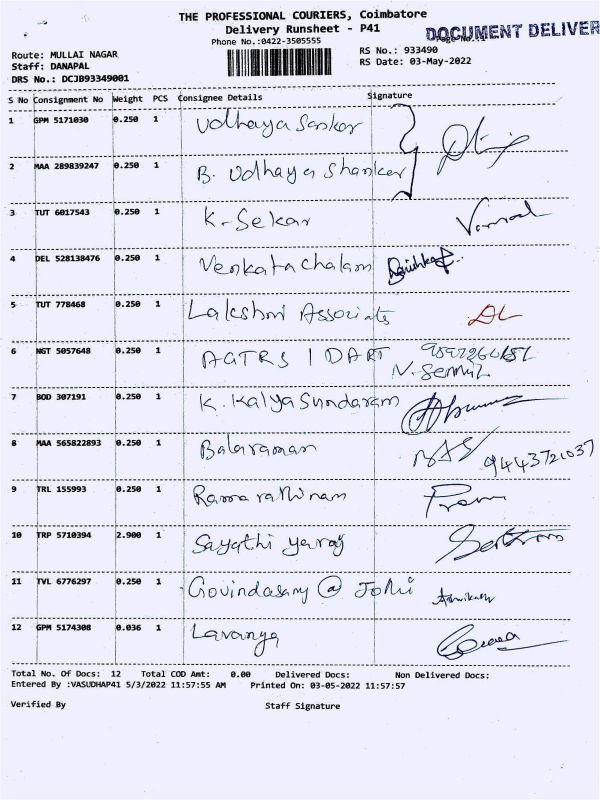 THE PROFESSIONAL COURIERS, Coimbatore
Delivery Runsheet - P41
DOCUMENT DELIVER
Phone No.:0422-3505555
Page No.:1
Route: MULLAI NAGAR
RS No.: 933490
Staff: DANAPAL
RS Date: 03-May-2022
DRS No.: DCJB93349001
S No Consignment No Weight PCS Consignee Details Signature
1 GPM 5171030 0.250 1 Udhaya Sankar
2 MAA 289839247 0.250 1 B. Udhaya Shanker
3 TUT 6017543 0.250 1 K. Sekar
4 DEL 528138476 0.250 1 Venkatachalam
5 TUT 778468 0.250 1 Lakshmi Associates
6 NGT 5057648 0.250 1
7 BOD 307191 0.250 1 K. Kalyasundaram
8 MAA 565822893 0.250 1 Balaraman 9443721037
9 TRL 155993 0.250 1 Ramarathinam
10 TRP 5710394 2.900 1
11 TVL 6776297 0.250 1 @
12 GPM 5174308 0.036 1 Lavanya
Total No. Of Docs: 12 Total COD Amt: 0.00 Delivered Docs: Non Delivered Docs:
Entered By :VASUDHAP41 5/3/2022 11:57:55 AM Printed On: 03-05-2022 11:57:57
Verified By Staff Signature